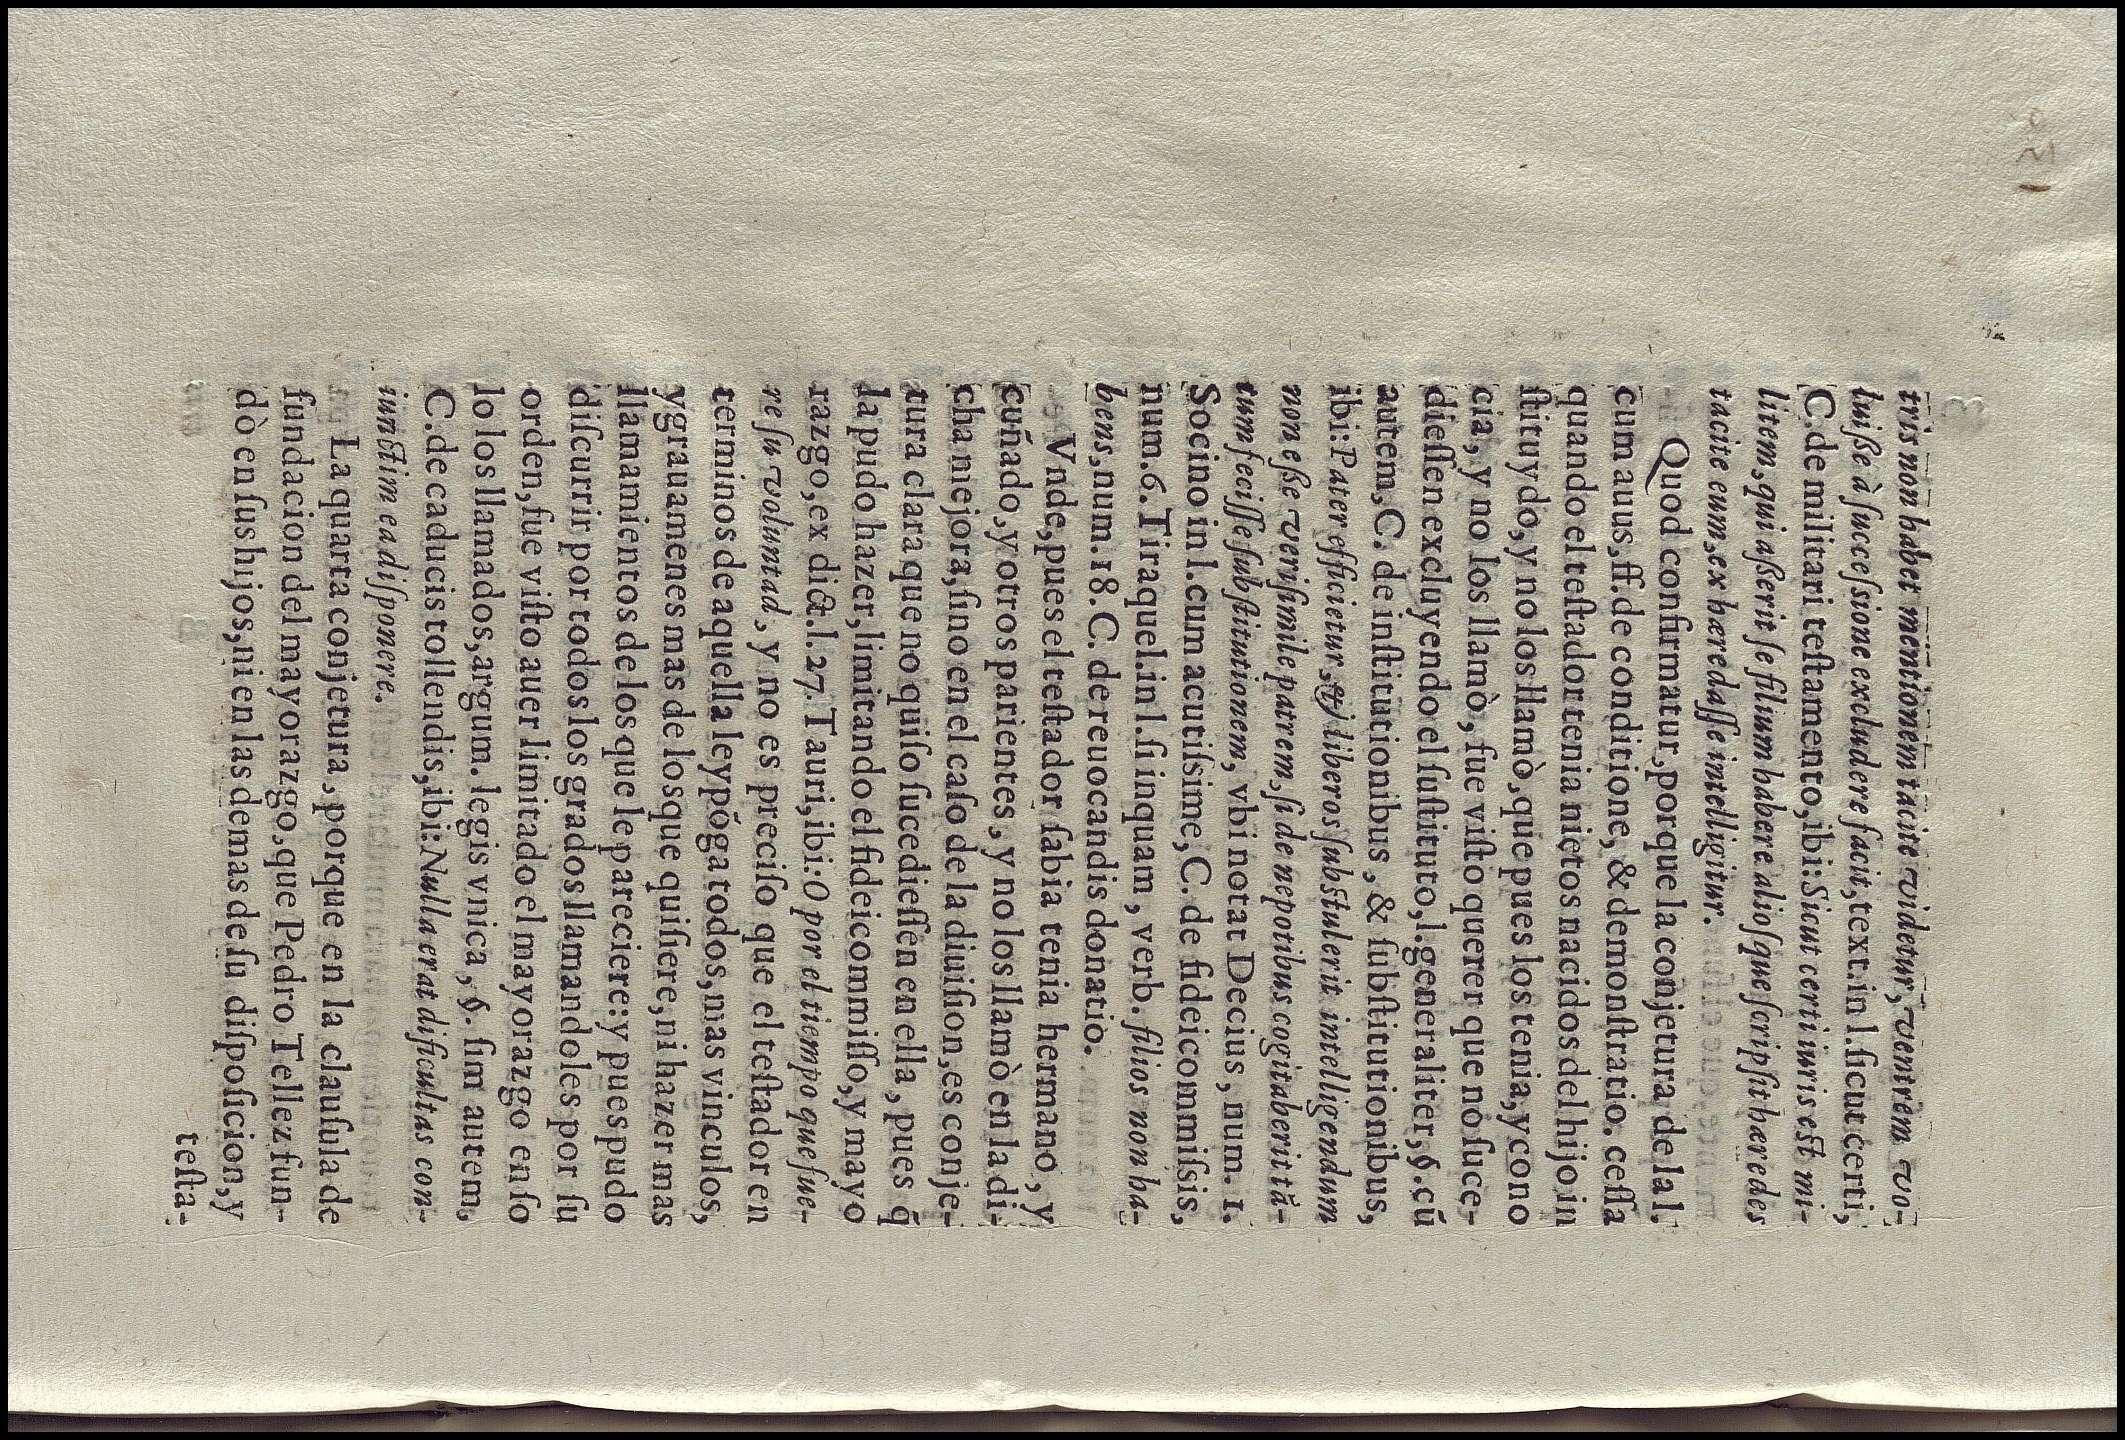 tris non habet mentionem tacite videtur, ventrem vo-
luiße à ſucceſsione excludere facit, text. in l. ſicut certi,
C. de militari teſtamento, ibi: Sicut certi iuris eſt mi-
litem, qui aßerit ſe filium habere alioſque ſcripſit hæredes
tacite eum, ex hæredaſſe intelligitur.
Quod confirmatur, porque la conjetura de la l.
cum auus, ff. de conditione, & demonſtratio. ceſſa
quando el teſtador tenia nietos nacidos del hijo in
ſtituydo, y no los llamò, que pues los tenia, y cono
cia, y no los llamò, fue viſto querer que no ſuce-
dieſſen excluyendo el ſuſtituto, l. generaliter, §. cū
autem, C. de inſtitutionibus, & ſubſtitutionibus,
ibi: Pater efficietur, & liberos ſubſtulerit intelligendum
non eße veriſimile patrem, ſi de nepotibus cogitaberit tā-
tum feciſſe ſubſtitutionem, vbi notat Decius, num. 1.
Socino in l. cum acutiſsime, C. de fideicommiſsis,
num. 6. Tiraquel. in l. ſi inquam, verb. filios non ha-
bens, num. 18. C. de reuocandis donatio.
Vnde, pues el teſtador ſabia tenia hermano, y
cuñado, y otros parientes, y no los llamò en la di-
cha mejora, ſino en el caſo de la diuiſion, es conje-
tura clara que no quiſo ſucedieſſen en ella, pues q̄
la pudo hazer, limitando el fideicommiſſo, y mayo
razgo, ex dict. l. 27. Tauri, ibi: O por el tiempo que fue-
re ſu voluntad, y no es preciſo que el teſtador en
terminos de aquella ley pōga todos, mas vinculos,
y grauamenes mas de los que quiſiere, ni hazer mas
llamamientos de los que le pareciere: y pues pudo
diſcurrir por todos los grados llamandoles por ſu
orden, fue viſto auer limitado el mayorazgo en ſo
lo los llamados, argum. legis vnica, §. ſim autem,
C. de caducis tollendis, ibi: Nulla erat dificultas con-
iunctim ea diſponere.
La quarta conjetura, porque en la clauſula de
fundacion del mayorazgo, que Pedro Tellez fun-
dò en ſus hijos, ni en las demas de ſu diſpoſicion, y
teſta-